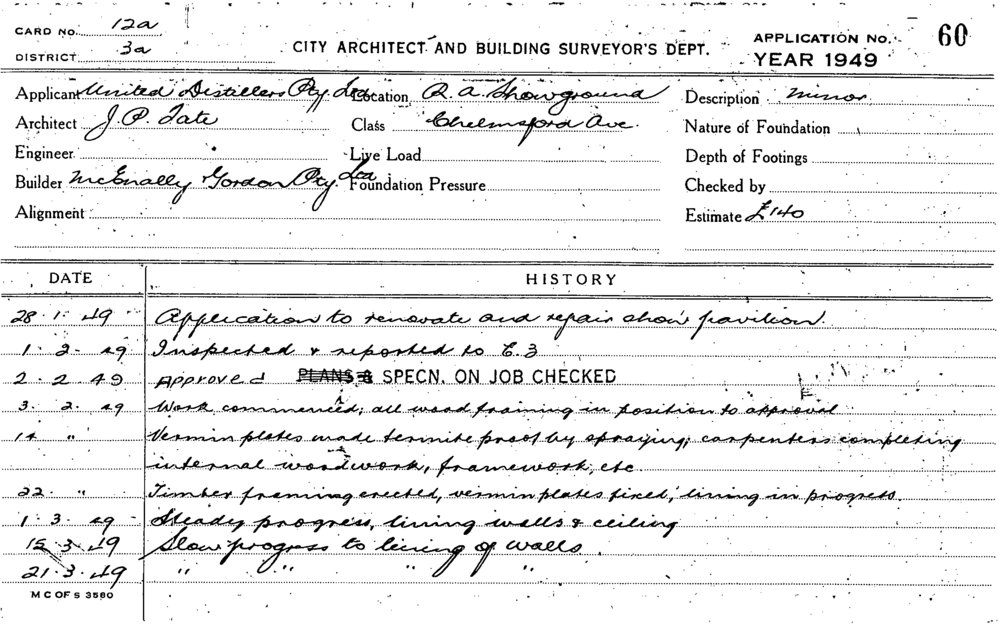 CARD NO. 12a
DISTRICT 3a
CITY ARCHITECT AND BUILDING SURVEYOR'S DEPT.
APPLICATION No. 60
YEAR 1949
Applicant United Distillers Pty. Ltd Location R. A. Showground Description minor
Architect J. P. Tate Class Chelmsford Ave. Nature of Foundation
Engineer Live Load Depth of Footings
Builder McEnally Gordon Pty. Ltd Foundation Pressure Checked by
Alignment Estimate £140
DATE HISTORY
28.1.49 Application to renovate and repair show pavilion.
1.2.49 Inspected & reported to E.3
2.2.49 Approved PLANS & SPECN. ON JOB CHECKED
3.2.49 Work commenced; all wood framing in position to approval
14 " Vermin plates made termite proof by spraying; carpenters completing
internal woodwork, framework, etc
22. " Timber framing erected, vermin plates fixed, lining in progress.
1.3.49 Steady progress, lining walls & ceiling
15.3.49 Slow progress to lining of walls.
21.3.49 " " " "
M C OF S 3580